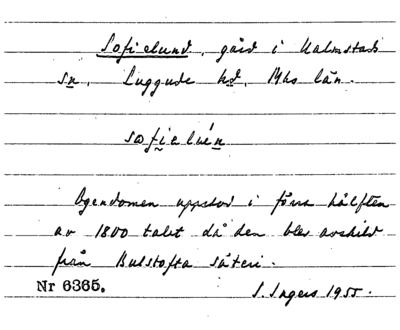 Sofielund, gård i Kalmstads
sn, Luggude hd, Mhs län.
sofieluǹn
Egendomen uppstod i förra hälften
av 1800 talet då den blev avskild
från Bulstofta säteri.
Nr 6365.
S. Ingers 1955.